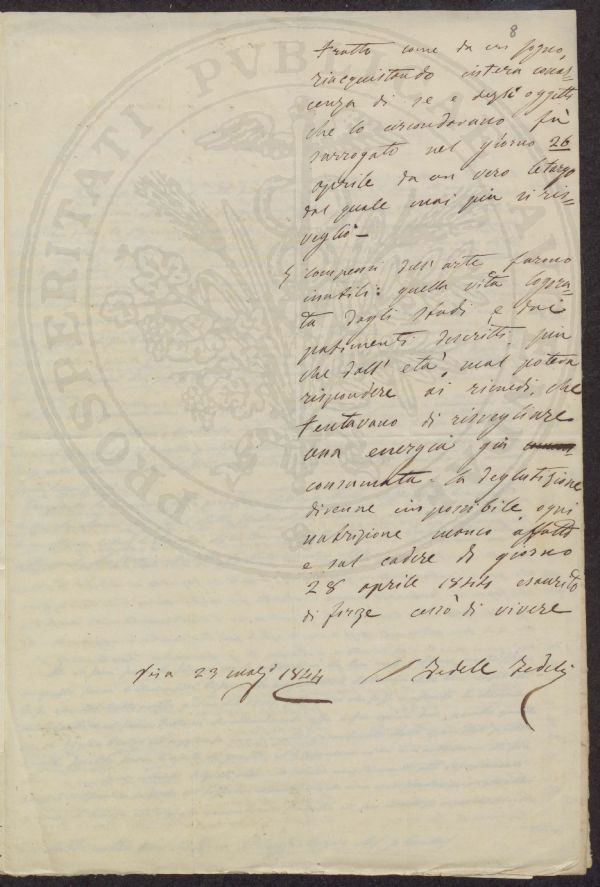 8
tratto come da un sogno,
riacquistando intera conos=
cenza di se e degli oggetti
che lo circondavano fù
surrogato nel giorno 26
aprile da un vero letargo
dal quale mai più si ris=
vegliò—
I compensi dell'arte furono
inutili: quella vita logora=
ta dagli studi e dai
patimenti descritti, più
che dall' età, mal poteva
rispondere ai rimedi, che
tentavano di risvegliare
una energia già
consumata. la deglutizione
divenne impossibile, ogni
nutrizione mancò affatto
e sul cadere di giorno
28 aprile 1844 esaurito
di forze cessò di vivere
Pisa 23 mag.º 1844 Fedele Fedeli
PROSPERITATI PUBLICAE AU